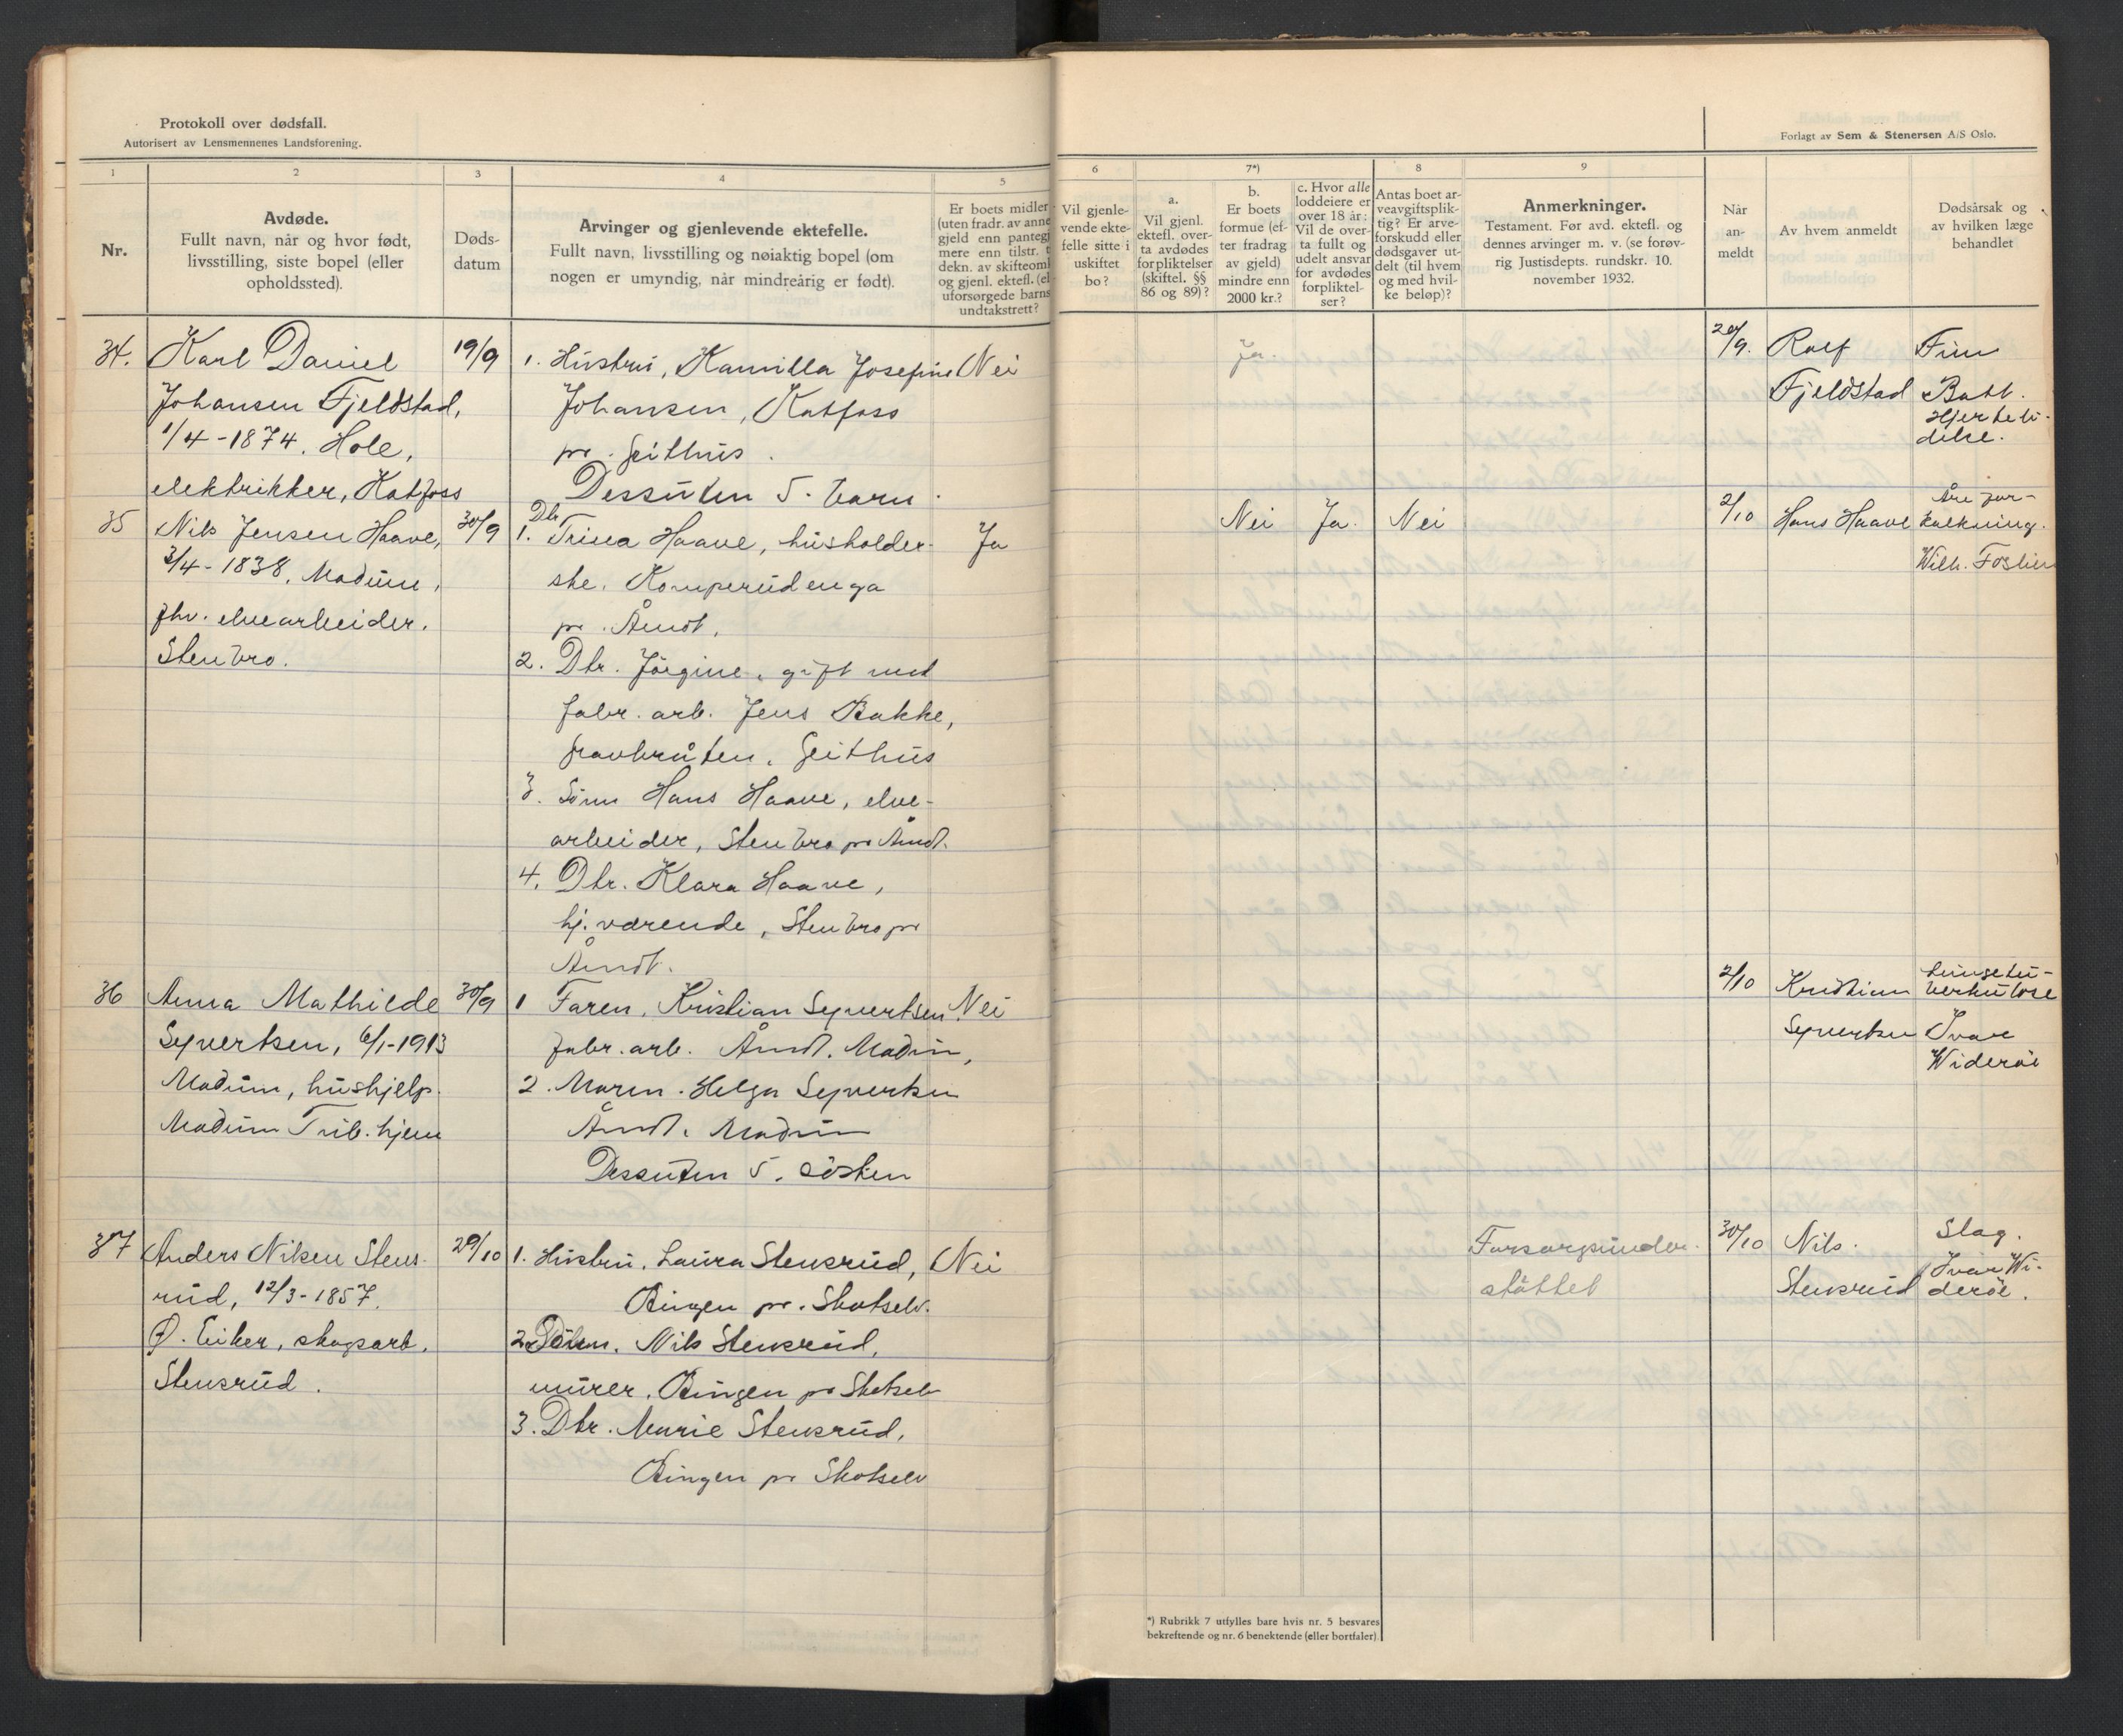 Protokoll over dødsfall.
Autorisert av Lensmennenes Landsforening.
Forlagt av Sem & Stenersen A/S Oslo.
1
2
3
4
5
6
7*)
8
9
Nr.
Avdøde.
Fullt navn, når og hvor født,
livsstilling, siste bopel (eller
opholdssted).
Døds-
datum
Arvinger og gjenlevende ektefelle.
Fullt navn, livsstilling og nøiaktig bopel (om
nogen er umyndig, når mindreårig er født).
Er boets midler
(uten fradr. av anne
gjeld enn pantegj
mere enn tilstr. t
dekn. av skifteoml
og gjenl. ektefl. (el
uforsørgede barns
undtakstrett?
Vil gjenle-
vende ekte-
felle sitte i
uskiftet
bo?
a.
Vil gjenl.
ektefl. over-
ta avdødes
forpliktelser
(skiftel. §§
86 og 89)?
b.
Er boets
formue (ef-
ter fradrag
av gjeld)
mindre enn
2000 kr.?
c. Hvor alle
loddeiere er
over 18 år:
Vil de over-
ta fullt og
udelt ansvar
for avdødes
forpliktel-
ser?
Antas boet ar-
veavgiftsplik-
tig? Er arve-
forskudd eller
dødsgaver ut-
delt (til hvem
og med hvil-
ke beløp)?
Anmerkninger.
Testament. Før avd. ektefl. og
dennes arvinger m. v. (se forøv-
rig Justisdepts. rundskr. 10.
november 1932.
Når
an-
meldt
Av hvem anmeldt
Dødsårsak og
av hvilken læge
behandlet
34.
Karl Daniel
Johansen Fjeldstad,
1/4-1874. Hole,
elektrikker, Katfoss
19/9
1. Hustru, Kamilla Josefine
Johansen, Katfoss
pr. Geithus.
Dessuten 5. barn.
Nei
Ja.
20/9.
Rolf
Fjeldstad
Finn
Batt.
Hjerteli-
delse.
35
Nils Jensen Haave,
3/4-1838, Modum,
fhv. elvearbeider.
Stenbro.
30/9
Dtr.
1. Trina Haave, husholder-
ske. Komperudenga
pr. Åmot.
2. Dtr. Jørgine, gift med
fabr. arb. Jens Bakke,
Geithus
3. Sønn Hans Haave, elve-
arbeider, Stenbro pr Åmot.
4. Dtr. Klara Haave,
hj. værende, Stenbro pr
Åmot.
Ja
Nei
Ja.
Nei
2/10
Hans Haave
Åre for-
kalkning.
Wilh. Foslien
36
Anna Mathilde
Syvertsen, 6/1-1913
Modum, hushjelp.
Modum Tub. hjem
30/9
1 Faren, Kristian Syvertsen
fabr. arb. Åmot. Modum,
2. Moren. Helga Syvertsen
Åmot. Modum
Dessuten 5. søsken
Nei
2/10
Kristian
Syvertsen
Lungetu-
berkulose
Ivar
Widerøe
37
Anders Nilsen Stens-
rud, 12/3-1857.
Ø. Eiker, skogsarb.
Stensrud.
29/10
1. Hustru, Laura Stensrud,
Bingen pr. Skotselv.
2. Sønn. Nils Stensrud,
murer, Bingen pr Skotselv
3. Dtr. Marie Stensrud,
Bingen pr Skotselv
Nei
Forsorgsunder-
støttet
30/10
Nils.
Stensrud
Slag.
Ivar Wi-
derøe.
*) Rubrikk 7 utfylles bare hvis nr. 5 besvares
bekreftende og nr. 6 benektende (eller bortfaler).